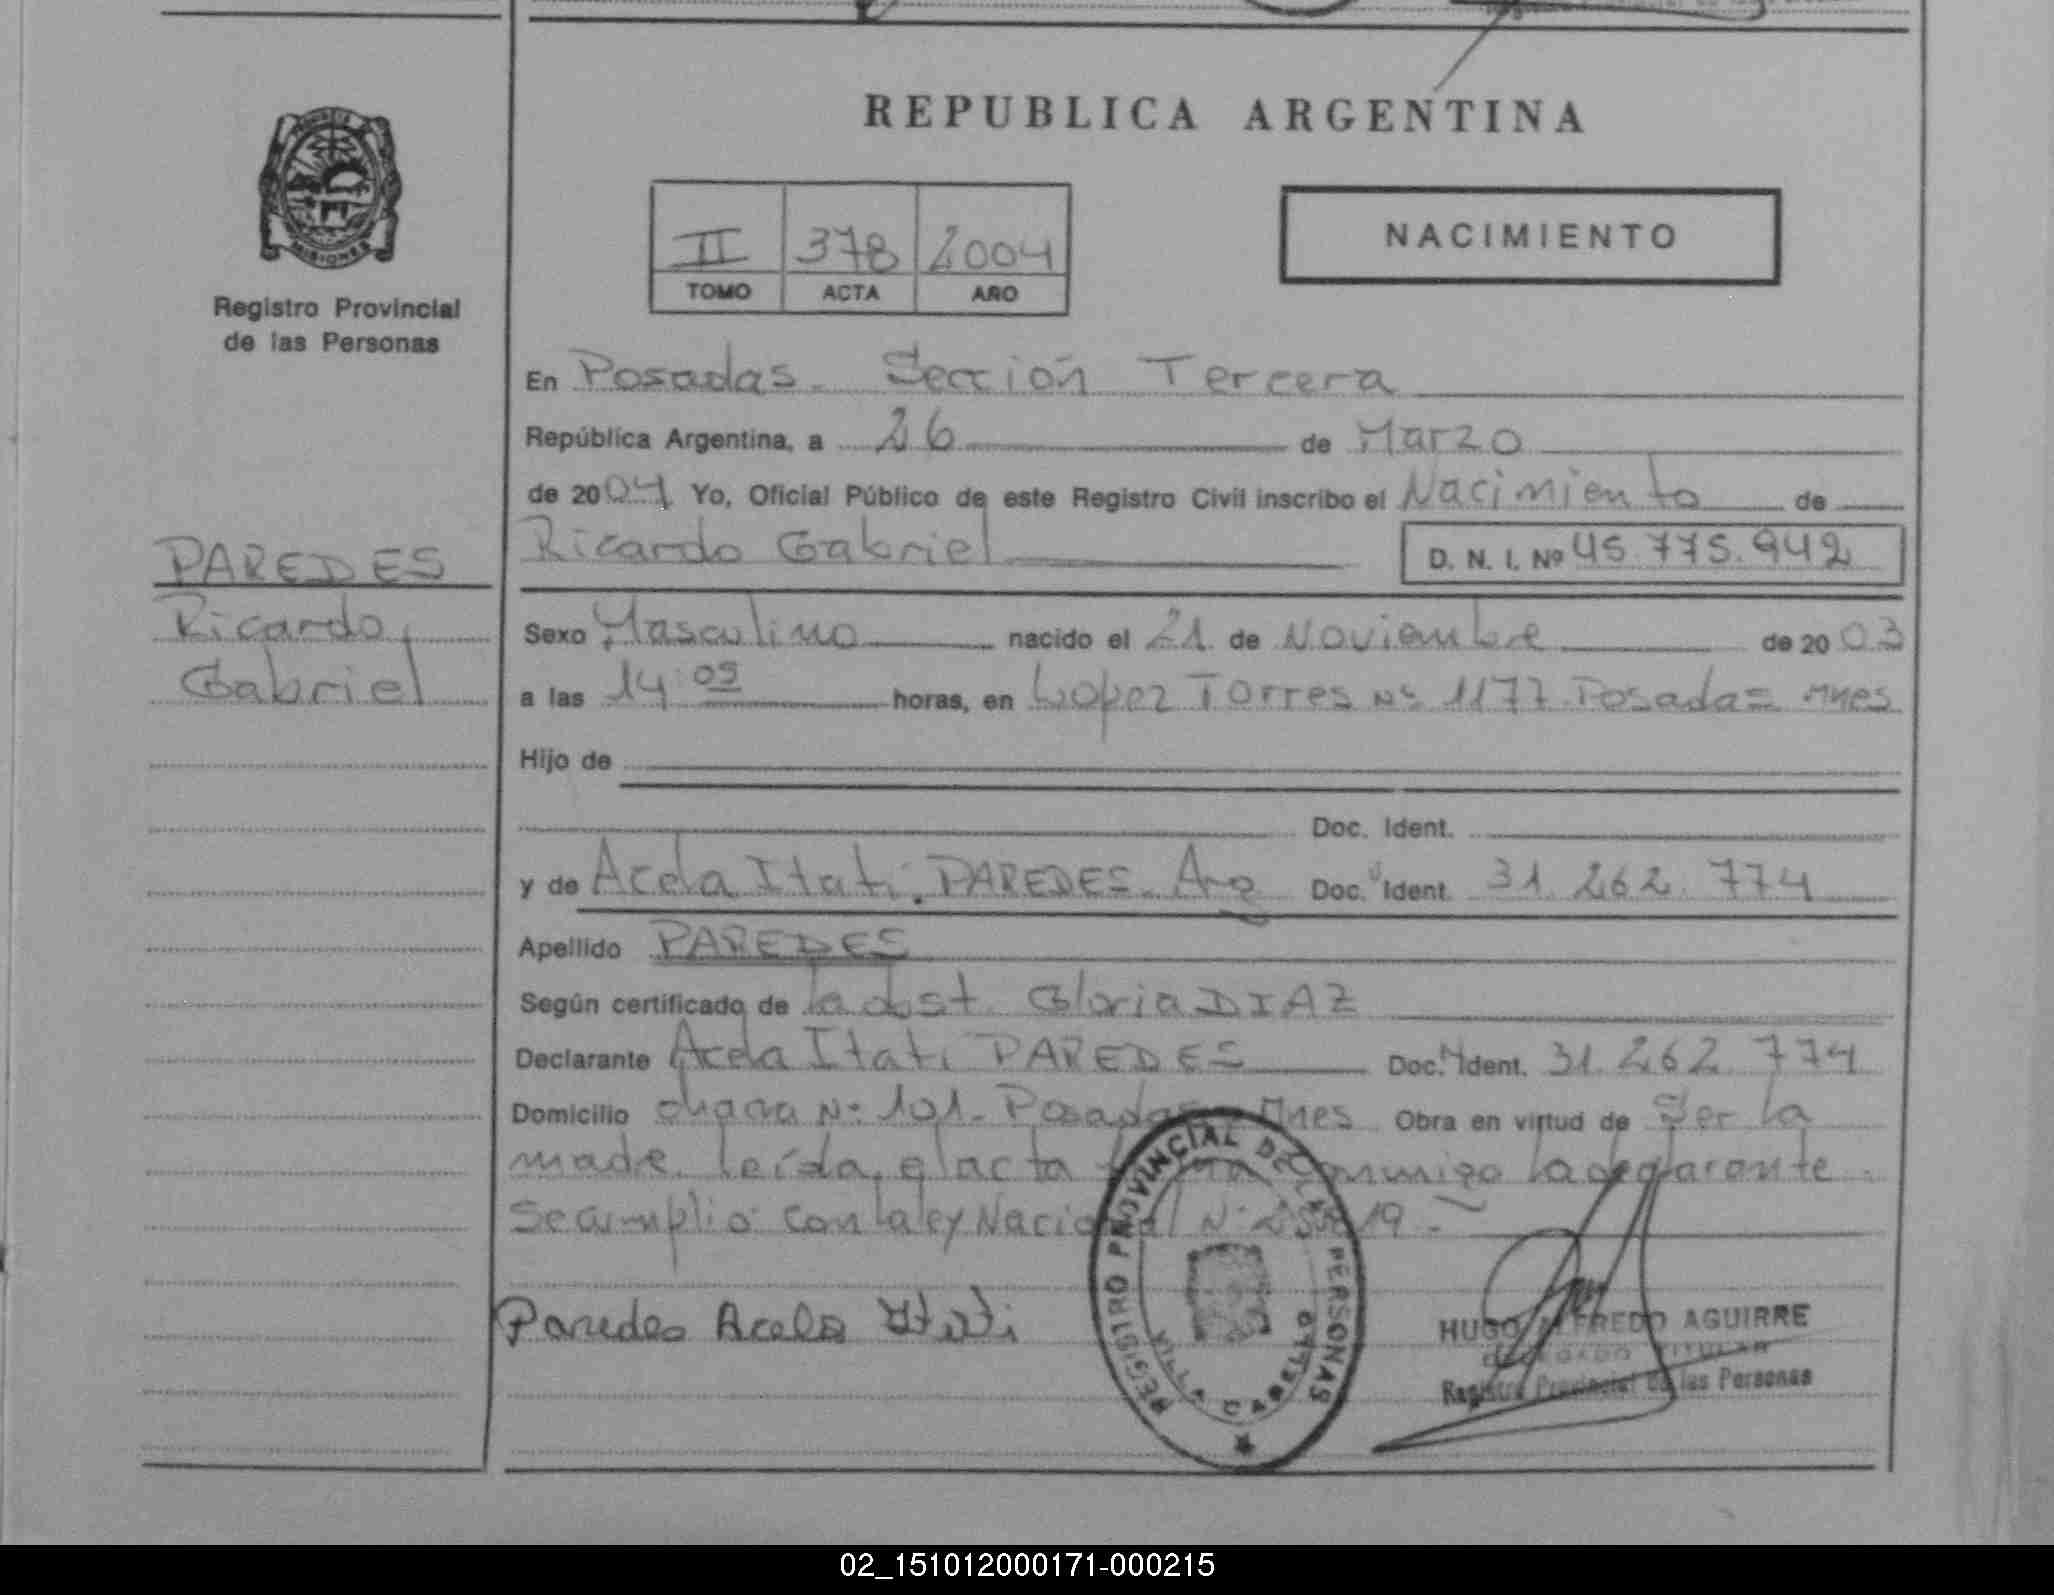 REPUBLICA ARGENTINA
PROVINCIA DE
MISIONES
Registro Provincial
de las Personas
II 378 2004
TOMO ACTA AÑO
NACIMIENTO
En Posadas. Sección Tercera
República Argentina, a 26 de Marzo
de 2004 Yo, Oficial Público de este Registro Civil inscribo el Nacimiento de
Ricardo Gabriel D. N. I. Nº 45.775.942
PAREDES
Ricardo
Gabriel
Sexo Masculino nacido el 21 de Noviembre de 2003
a las 14:05 horas, en Lopez Torres Nº 1177 Posadas Mnes
Hijo de
Doc. Ident.
y de Acela Itati PAREDES Arg Doc. Ident. 31.262.774
Apellido PAREDES
Según certificado de la obst. Gloria DIAZ
Declarante Acela Itati PAREDES Doc. Ident. 31.262.774
Domicilio chacra Nº 101 - Posadas - Mnes Obra en virtud de Ser la
madre. leída el acta firma conmigo la declarante.
Se cumplió con la ley Nacional Nº
Paredes Acela Itati
REGISTRO PROVINCIAL DE LAS PERSONAS
VILLA CABELLO
HUGO ALFREDO AGUIRRE
DELEGADO TITULAR
Registro Provincial de las Personas
02_151012000171-000215